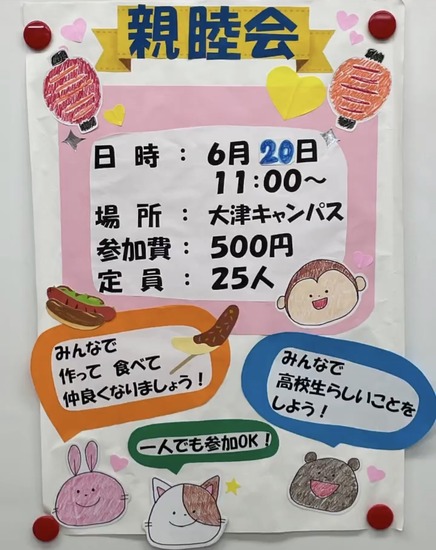 親睦会
日時：6月20日
11:00〜
場所：大津キャンパス
参加費：500円
定員：25人
みんなで
作って 食べて
仲良くなりましょう！
みんなで
高校生らしいことを
しよう！
一人でも参加OK！